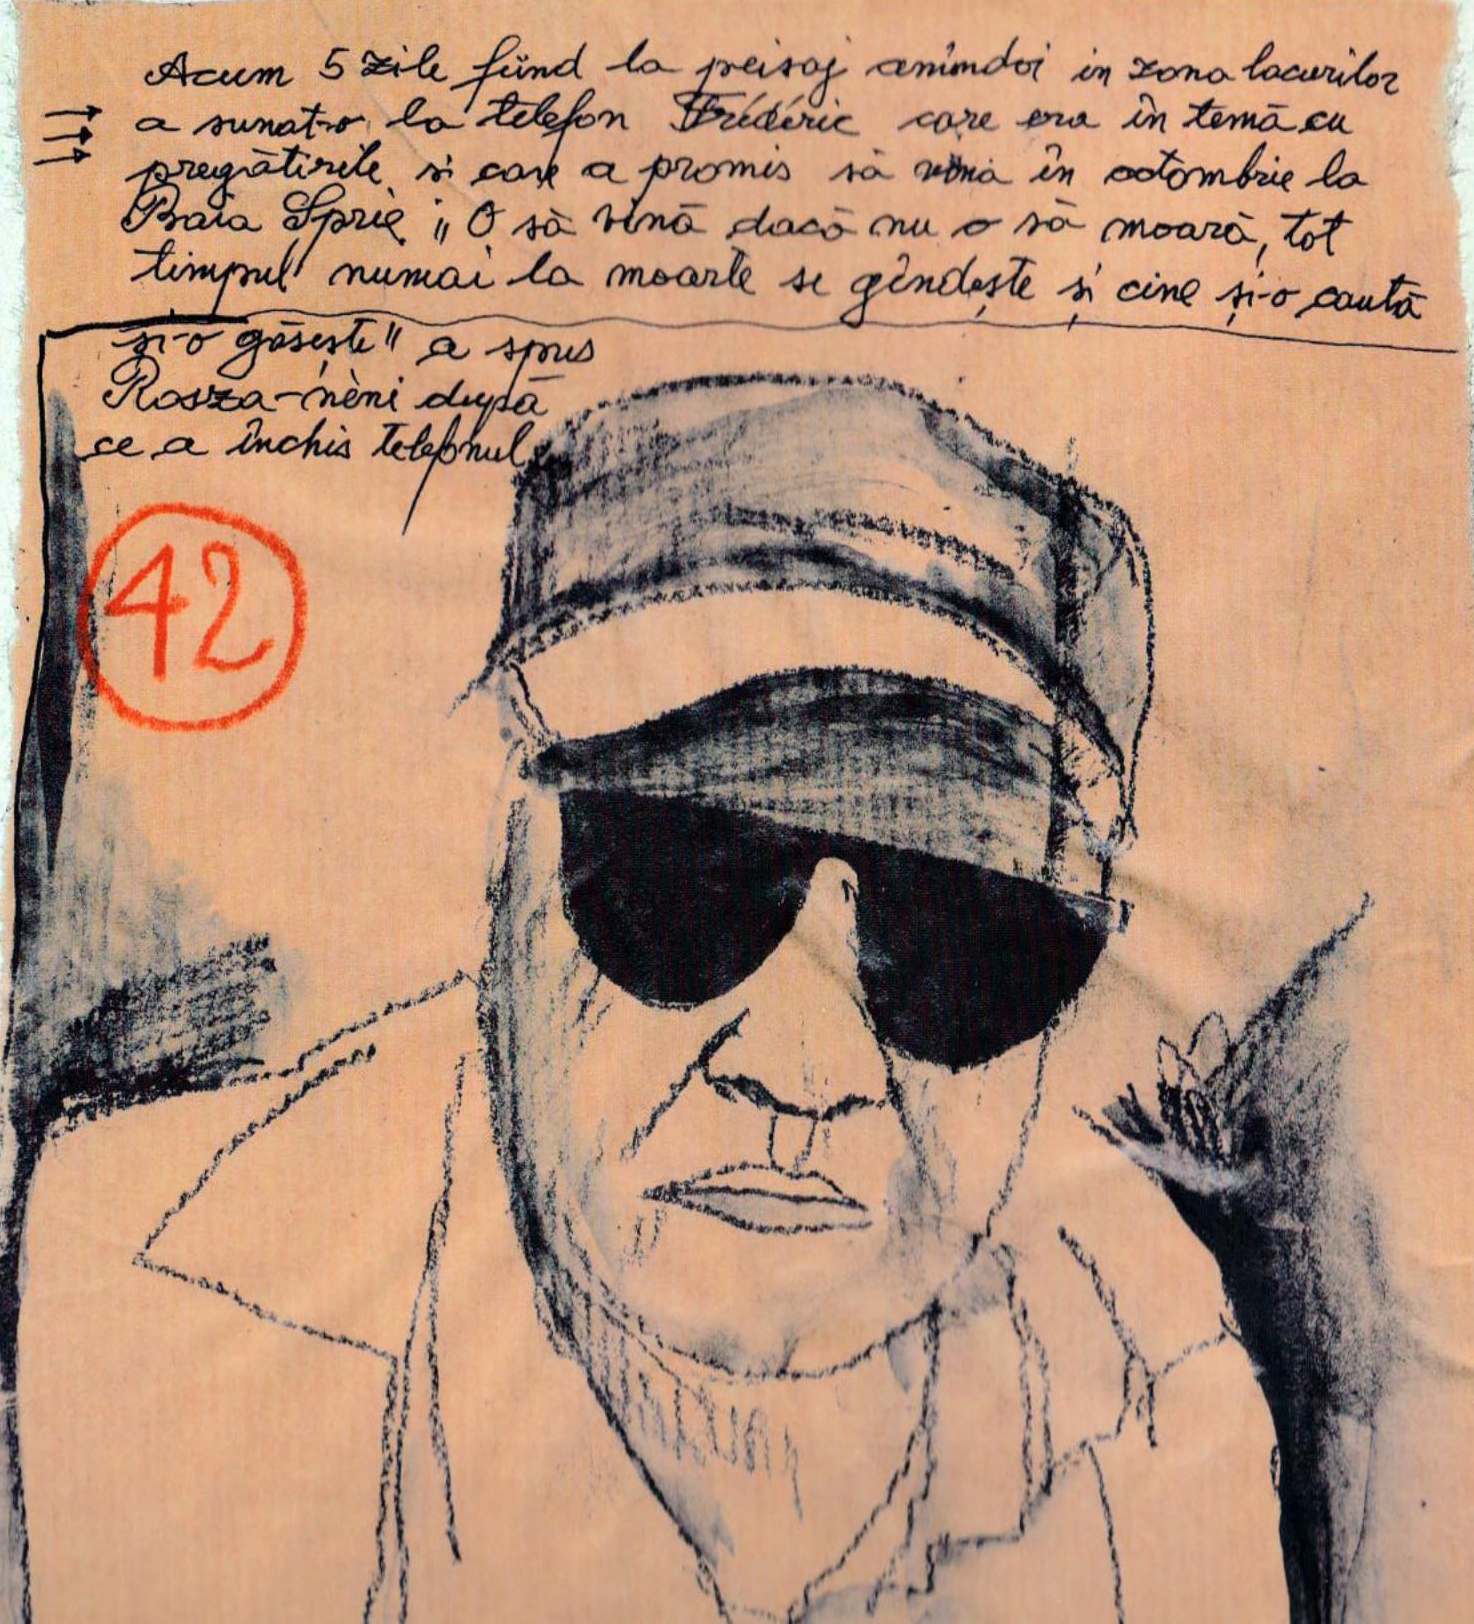 Acum 5 zile fiind la peisaj amîndoi in zona lacurilor
a sunat-o la telefon Frédéric care era în temă cu
pregătirile și care a promis să vină în octombrie la
Baia Sprie. "O să vină dacă nu o să moară, tot
timpul numai la moarte se gîndește și cine și-o caută
și-o găsește" a spus
Rosza-nèni după
ce a închis telefonul.
42